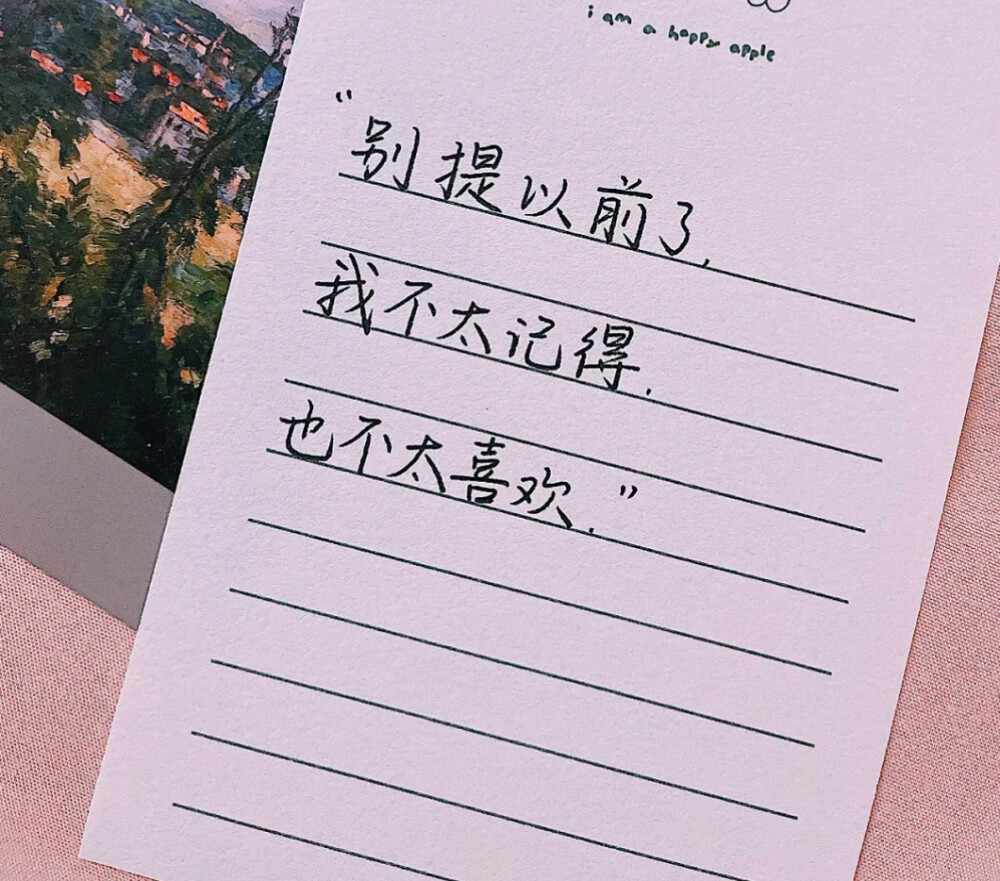 i am a happy apple
“别提以前了,
我不太记得.
也不太喜欢.”